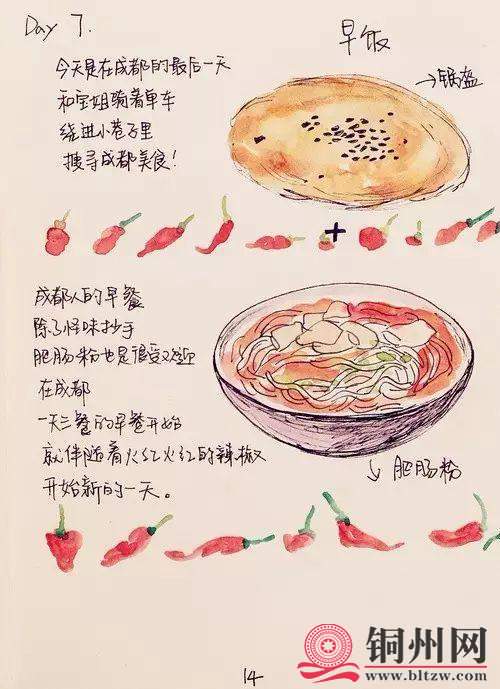 Day 7.
早饭
今天是在成都的最后一天
和宝姐骑着单车
绕进小巷子里
搜寻成都美食!
→锅盔
+
成都人的早餐
除了怪味抄手
肥肠粉也是很受欢迎
在成都
一天三餐的早餐开始
就伴随着火红火红的辣椒
开始新的一天。
肥肠粉
14
铜州网
www.bltzw.com